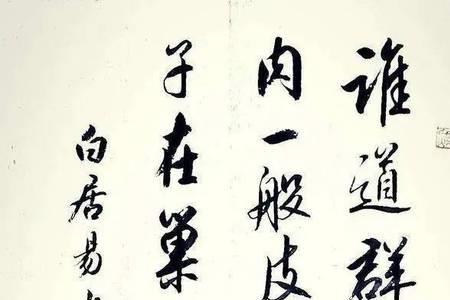 谁道群
肉一般皮
子在巢
白居易